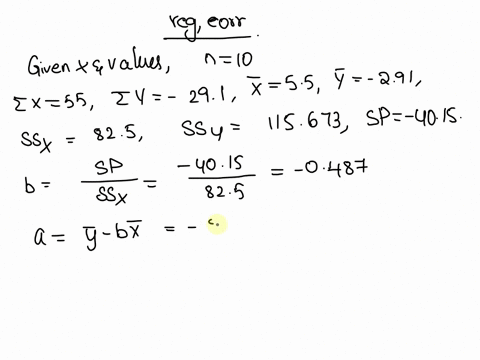 reg, corr.
Given x & values, n=10
Σx=55, ΣY=-29.1, x̄=5.5, Ȳ=-2.91,
SSx = 82.5, SSy = 115.673, SP=-40.15.
b = SP/SSx = -40.15/82.5 = -0.487
a = ȳ-bx̄ = -